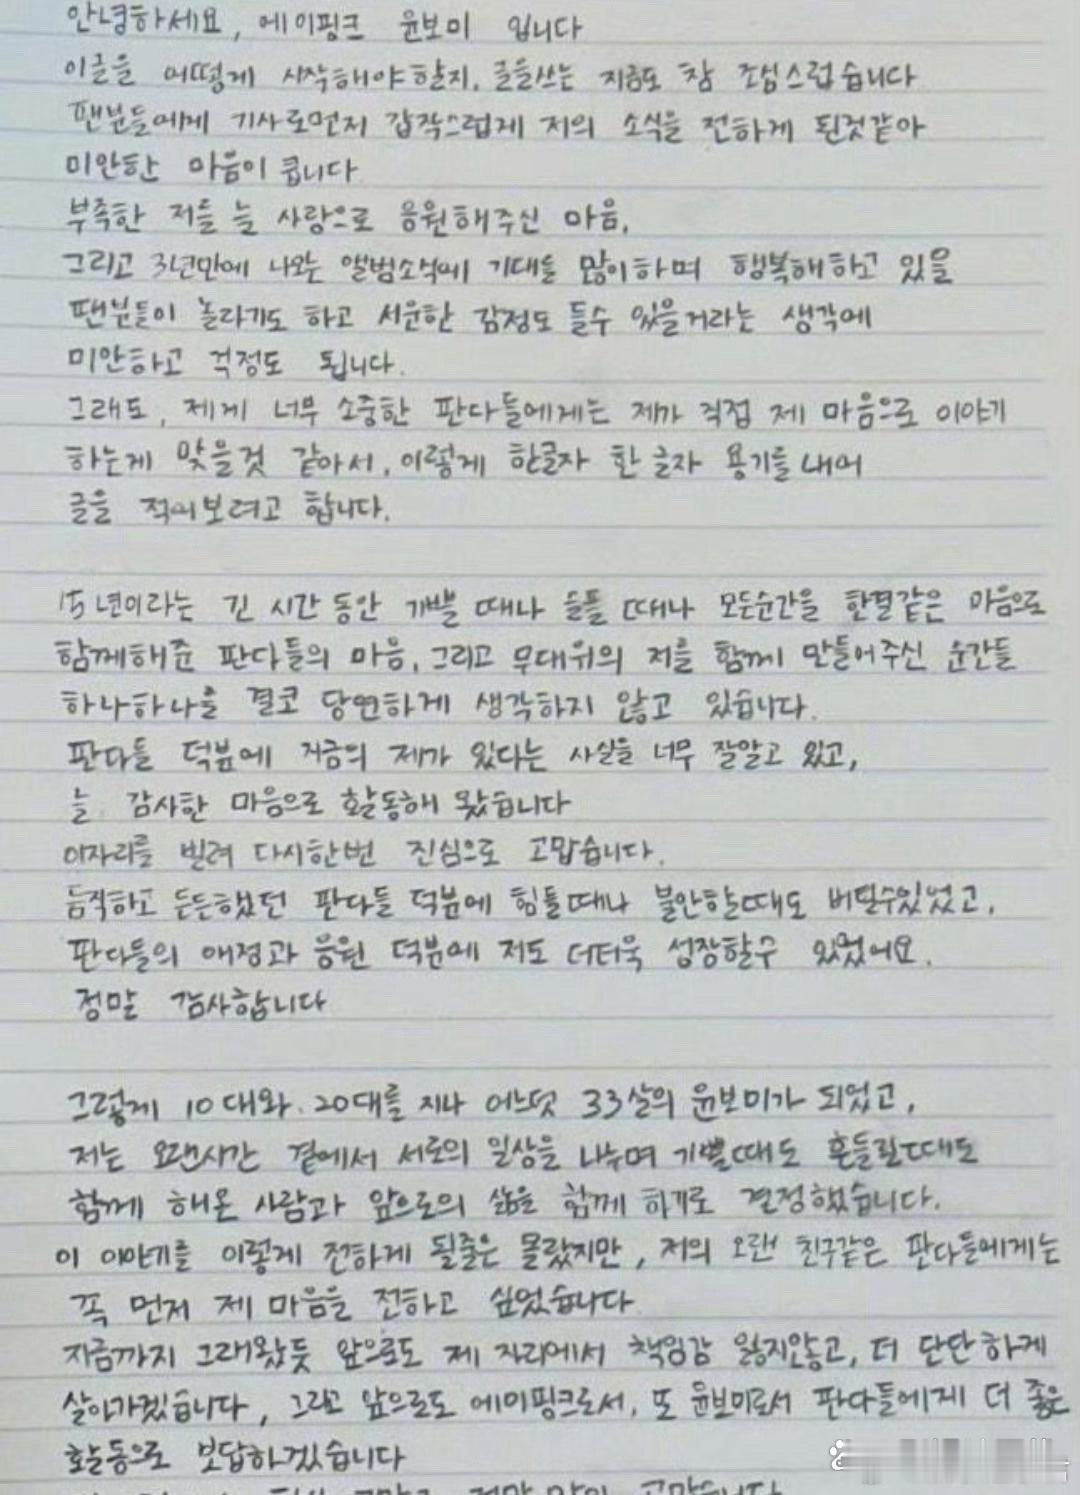 안녕하세요, 에이핑크 윤보미 입니다
이글을 어떻게 시작해야할지, 글을쓰는 지금도 참 조심스럽습니다
팬분들에게 기사로먼저 갑작스럽게 저의 소식을 전하게 된것같아
미안한 마음이 큽니다
부족한 저를 늘 사랑으로 응원해주신 마음,
그리고 3년만에 나오는 앨범소식에 기대를 많이하며 행복해하고 있을
팬분들이 놀라기도 하고 서운한 감정도 들수 있을거라는 생각에
미안하고 걱정도 됩니다.
그래도, 제게 너무 소중한 판다들에게는 제가 직접 제 마음으로 이야기
하는게 맞을것 같아서, 이렇게 한글자 한 글자 용기를 내어
글을 적어보려고 합니다.
15년이라는 긴 시간 동안 기쁠 때나 슬플 때나 모든순간을 한결같은 마음으로
함께해준 판다들의 마음, 그리고 무대위의 저를 함께 만들어주신 순간들
하나하나를 결코 당연하게 생각하지 않고 있습니다.
판다들 덕분에 지금의 제가 있다는 사실을 너무 잘알고 있고,
늘 감사한 마음으로 활동해 왔습니다
이자리를 빌려 다시한번 진심으로 고맙습니다.
듬직하고 든든했던 판다들 덕분에 힘들때나 불안할때도 버틸수있었고,
판다들의 애정과 응원 덕분에 저도 더더욱 성장할수 있었어요.
정말 감사합니다
그렇게 10대와 20대를 지나 어느덧 33살의 윤보미가 되었고,
저는 오랜시간 곁에서 서로의 일상을 나누며 기쁠때도 흔들릴때도
함께 해온 사람과 앞으로의 삶을 함께 하기로 결정했습니다.
이 이야기를 이렇게 전하게 될줄은 몰랐지만, 저의 오랜 친구같은 판다들에게는
꼭 먼저 제 마음을 전하고 싶었습니다
지금까지 그래왔듯 앞으로도 제 자리에서 책임감 잃지않고, 더 단단하게
살아가겠습니다, 그리고 앞으로도 에이핑크로서, 또 윤보미로서 판다들에게 더 좋은
활동으로 보답하겠습니다